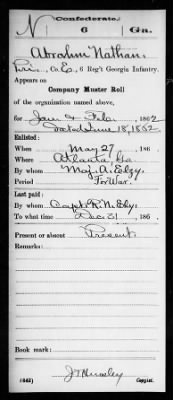 Confederate.
N 6 Ga.
Abrahm Nathan
Pri, Co. E, 6 Reg't Georgia Infantry.
Appears on
Company Muster Roll
of the organization named above,
for Jan & Feb, 1862
Dated June 18, 1862
Enlisted:
When May 27, 186
Where Atlanta, Ga
By whom Maj. A.
Period For War.
Last paid:
By whom Capt. R. N.
To what time Dec 31, 186
Present or absent Present
Remarks:
Book mark:
(642)
Copyist.